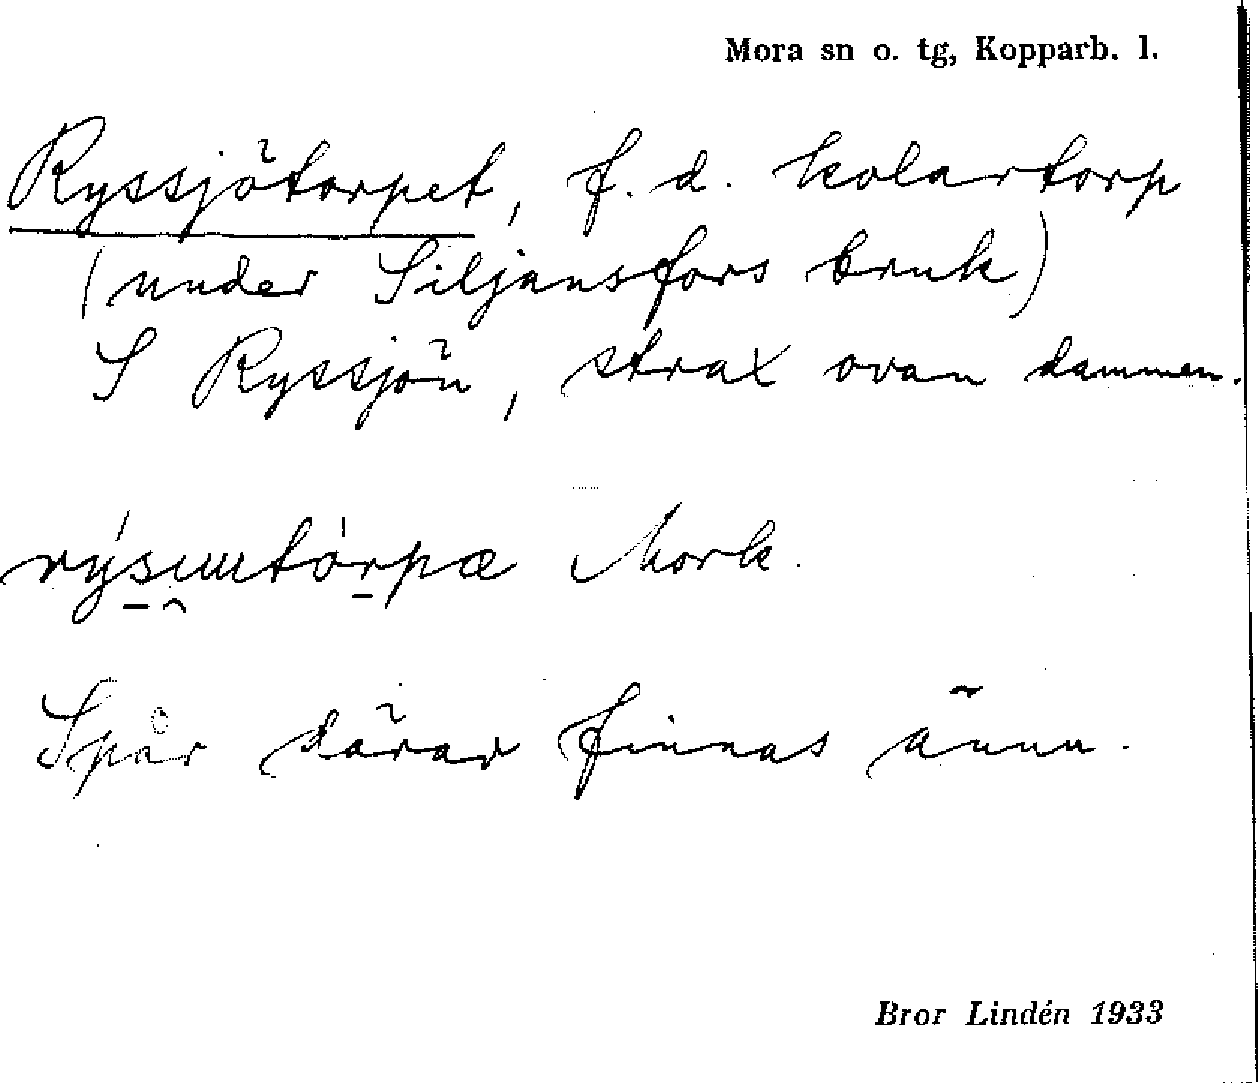 Mora sn o. tg, Kopparb. l.
Ryssjötorpet, f.d. kolartorp
(under Siljansfors bruk)
S Ryssjön, strax ovan dammen.
Mork.
Spår därav finnas ännu.
Bror Lindén 1933